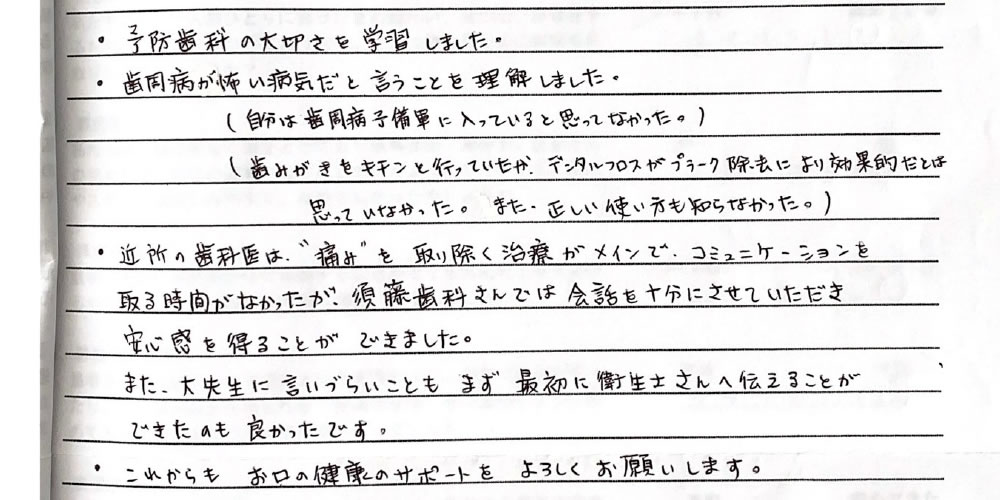 ・予防歯科の大切さを学習しました。
・歯周病が怖い病気だと言うことを理解しました。
(自分は歯周病予備軍に入っていると思ってなかった。)
(歯みがきをキチンと行っていたが、デンタルフロスがプラーク除去により効果的だとは
思っていなかった。また、正しい使い方も知らなかった。)
・近所の歯科医は、"痛み"を取り除く治療がメインで、コミュニケーションを
取る時間がなかったが、須藤歯科さんでは会話を十分にさせていただき
安心感を得ることができました。
また、大先生に言いづらいこともまず最初に衛生士さんへ伝えることが
できたのも良かったです。
・これからもお口の健康のサポートをよろしくお願いします。